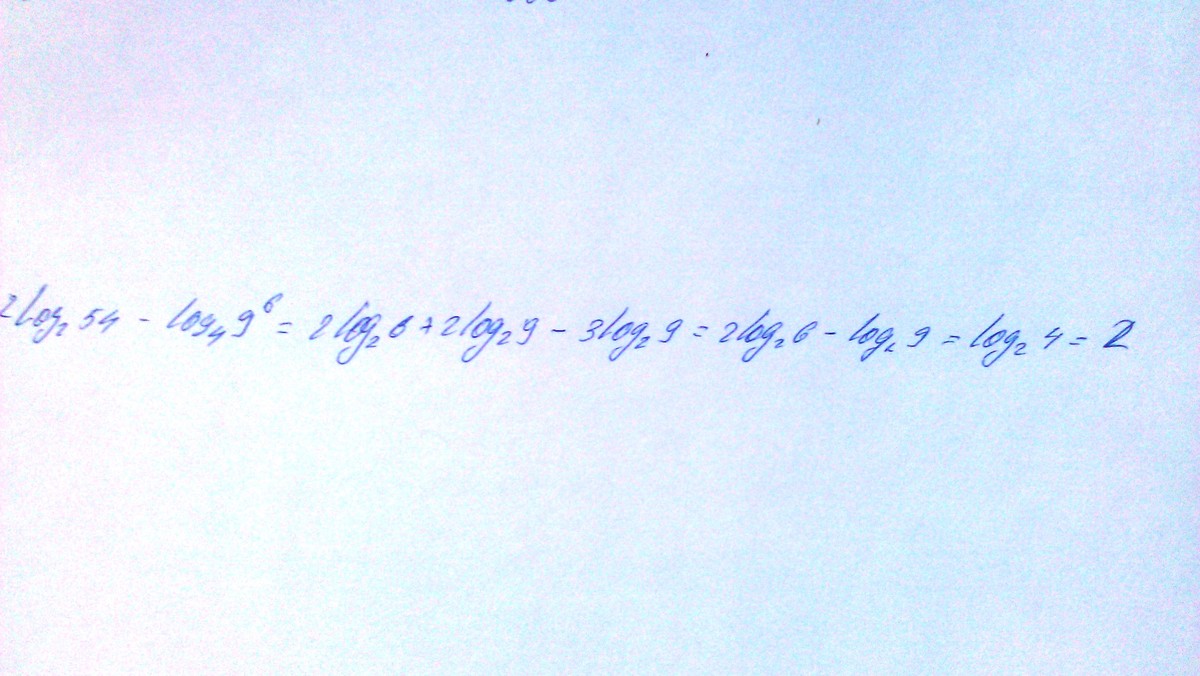 2log₂54 - log₄9⁶ = 2log₂6 + 2log₂9 - 3log₂9 = 2log₂6 - log₂9 = log₂4 = 2